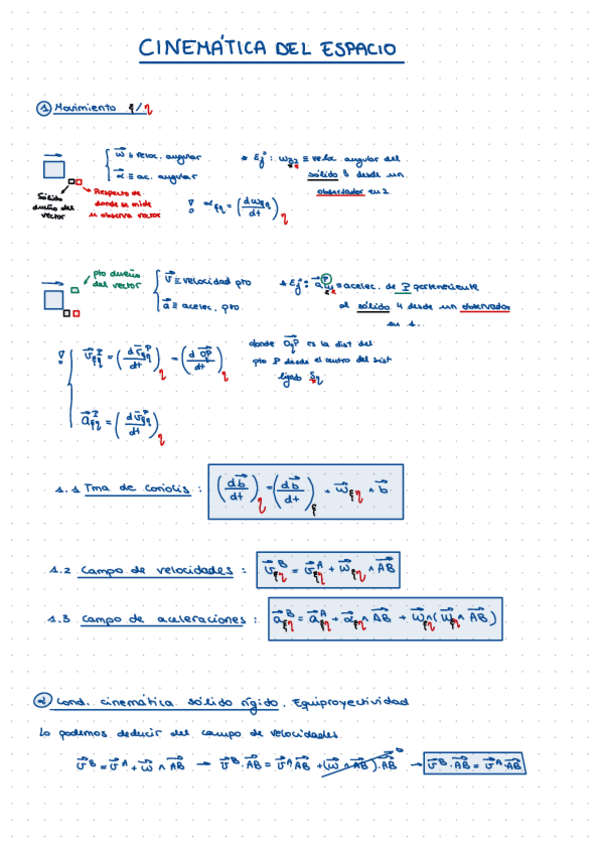 CINEMÁTICA DEL ESPACIO
① Movimiento ξ/η
Sólido dueño del vector
Respecto de donde se mide u observa vector
ω⃗ ≡ veloc. angular
α⃗ ≡ ac. angular
* Ej: ω⃗₃₂ ≡ veloc. angular del
sólido 3 desde un
observador en 2
! α_ξη = (dω_ξη/dt)_η
pto dueño del vector
v⃗ ≡ velocidad pto
a⃗ ≡ acelec. pto
* Ej: a⃗ᴾ₄₁ ≡ acelec. de P perteneciente
al sólido 4 desde un observador
en 1.
donde OηP es la dist del
pto P desde el centro del sist
ligado Sη
1.1 Tma de Coriolis : (db⃗/dt)_η = (db⃗/dt)_ξ + ω⃗_ξη ∧ b⃗
1.2 Campo de velocidades : v⃗ᴮ_ξη = v⃗ᴬ_ξη + ω⃗_ξη ∧ AB
1.3 Campo de aceleraciones : a⃗ᴮ_ξη = a⃗ᴬ_ξη + α⃗_ξη ∧ AB + ω⃗_ξη ∧ (ω⃗_ξη ∧ AB)
② Cond. cinemática sólido rígido. Equiproyectividad
Lo podemos deducir del campo de velocidades
v⃗ᴮ = v⃗ᴬ + ω⃗ ∧ AB → v⃗ᴮ · AB = v⃗ᴬ AB + (ω⃗ ∧ AB) · AB ⁰ → v⃗ᴮ · AB = v⃗ᴬ · AB